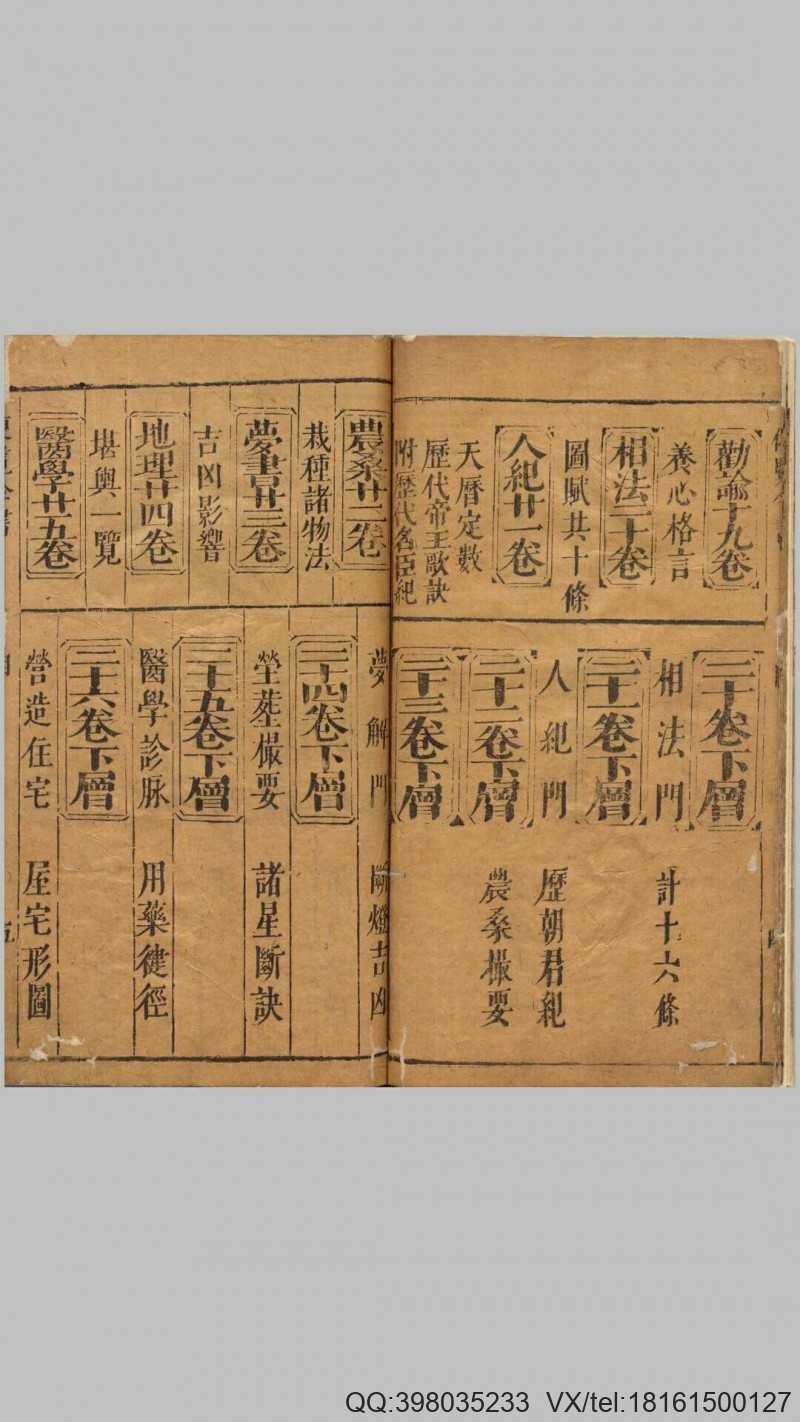 勸諭十九卷
養心格言
相法二十卷
圖賦共十條
人紀廿一卷
天曆定數
歷代帝王歌訣
附歷代名臣紀
二十卷下層
相法門 計十六條
二十一卷下層
人紀門 歷朝君紀
二十二卷下層
農桑撮要
二十三卷下層
農桑廿二卷
栽種諸物法
夢書廿三卷
吉凶影響
地理廿四卷
堪輿一覽
醫學廿五卷
夢解門 吉凶
二十四卷下層
塋葬撮要 諸星斷訣
二十五卷下層
醫學診脉 用藥徤徑
二十六卷下層
營造住宅 屋宅形圖
QQ:398035233 VX/tel:18161500127